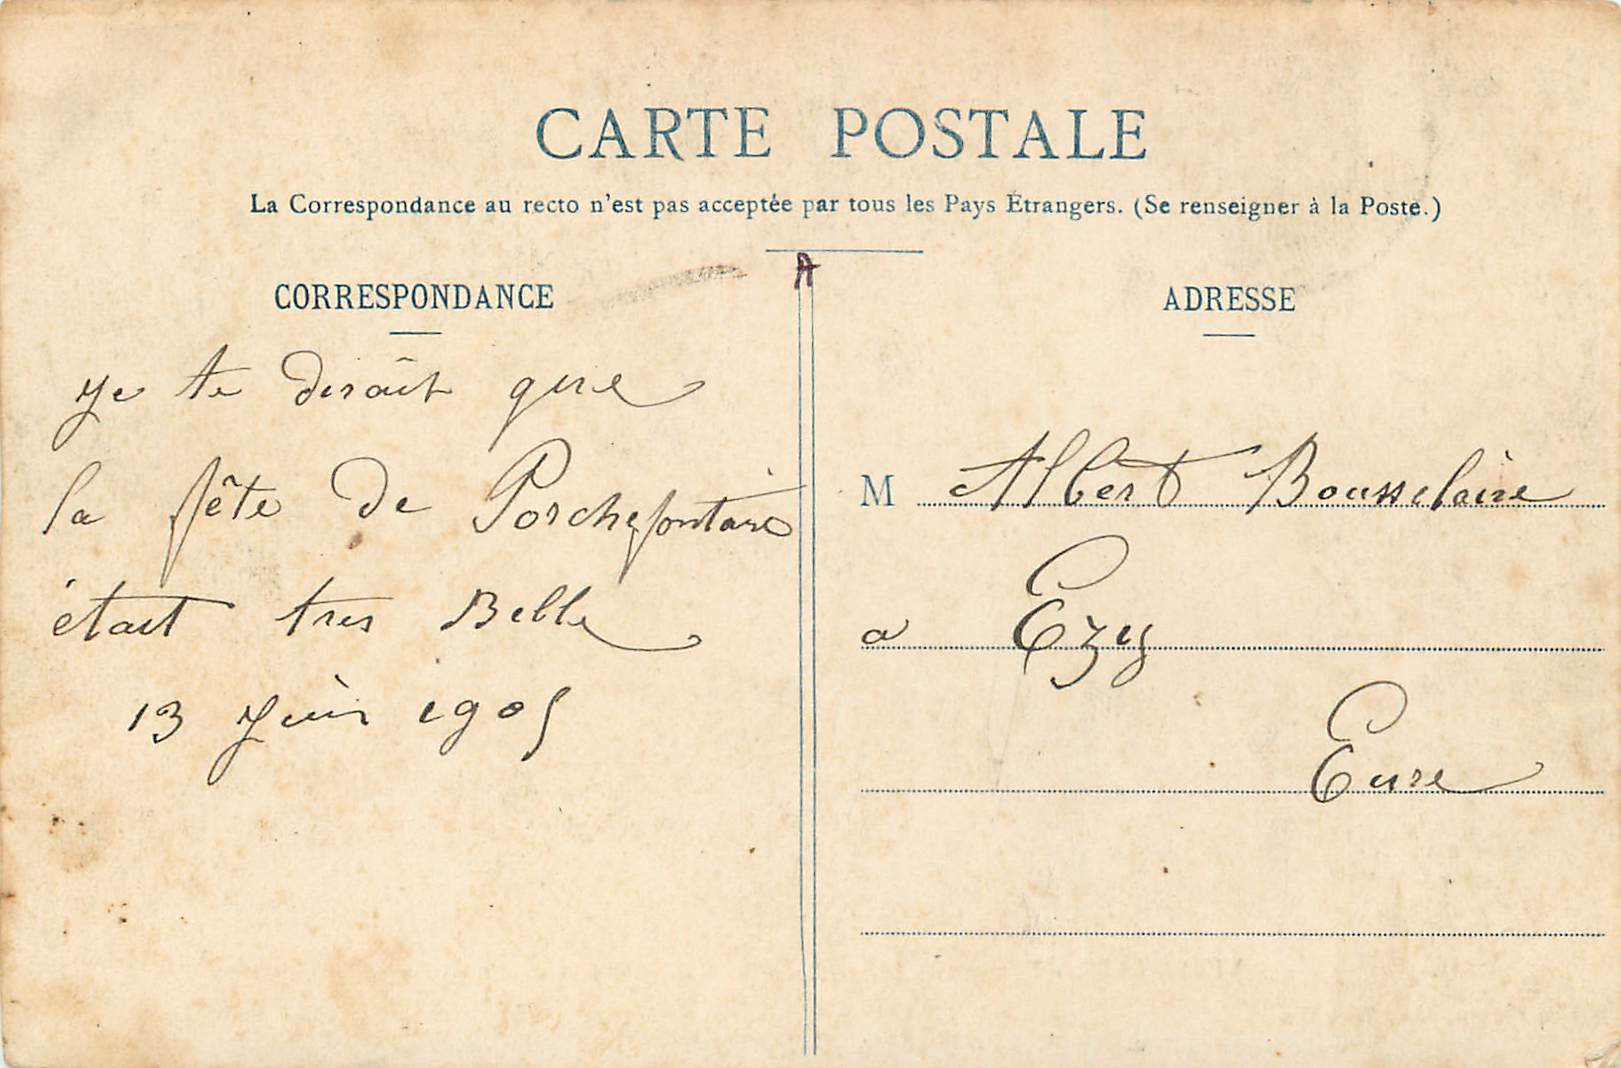 CARTE POSTALE
La Correspondance au recto n'est pas acceptée par tous les Pays Étrangers. (Se renseigner à la Poste.)
A
CORRESPONDANCE
Je te dirait que
la fête de Porchefontaine
était tres Belle
13 Juin 1905
ADRESSE
M Albert
a Ezy
Eure